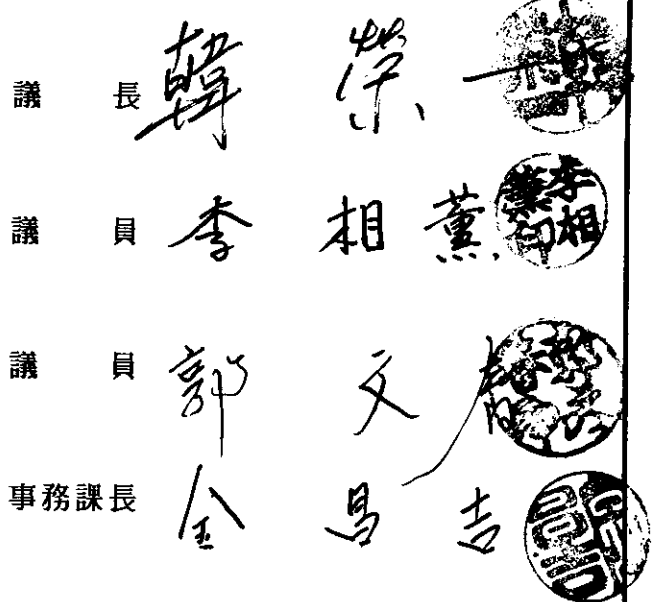 議長 韓榮一
議員 李相薰 李相薰印
議員 郭文
事務課長 金昌吉